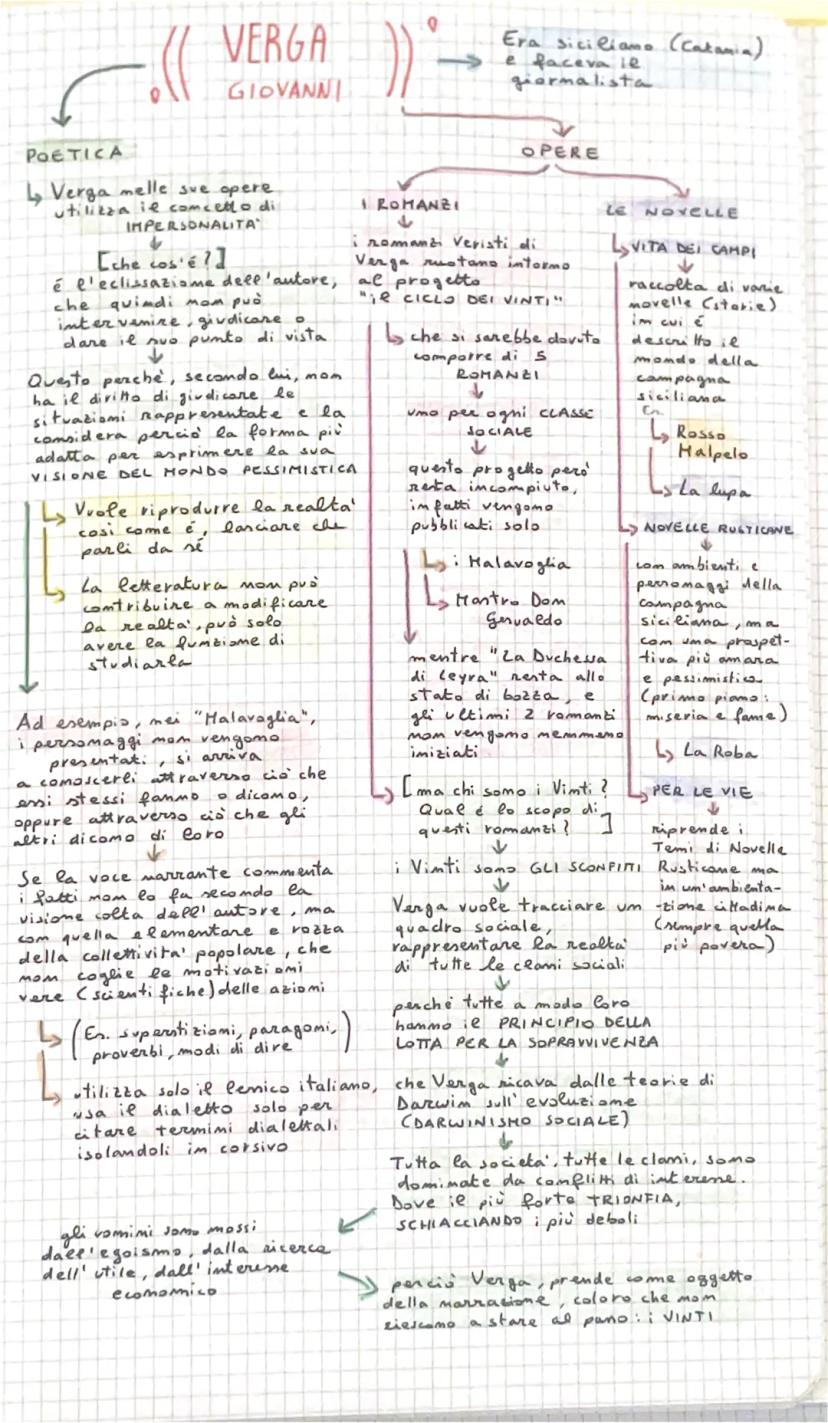 VERGA
GIOVANNI
Era siciliano (Catania)
e faceva il
giornalista
POETICA
Verga nelle sue opere
utilizza il concetto di
IMPERSONALITA'
[che cos'é?]
é l'eclissazione dell'autore,
che quindi non può
intervenire, giudicare o
dare il suo punto di vista
Questo perchè, secondo lui, non
ha il diritto di giudicare le
situazioni rappresentate e la
considera perciò la forma più
adatta per esprimere la sua
VISIONE DEL MONDO PESSIMISTICA
Vuole riprodurre la realtà
così come é, lasciare che
parli da sé
La letteratura non può
contribuire a modificare
la realtà, può solo
avere la funzione di
studiarla
Ad esempio, nei "Malavoglia",
i personaggi non vengono
presentati, si arriva
a conoscerli attraverso ciò che
essi stessi fanno o dicono,
oppure attraverso ciò che gli
altri dicono di loro
Se la voce narrante commenta
i fatti non lo fa secondo la
visione colta dell'autore, ma
con quella elementare e rozza
della collettività popolare, che
non coglie le motivazioni
vere (scientifiche) delle azioni
(Es. superstizioni, paragoni,
proverbi, modi di dire)
utilizza solo il lessico italiano,
usa il dialetto solo per
citare termini dialettali
isolandoli in corsivo
OPERE
I ROMANZI
i romanzi Veristi di
Verga ruotano intorno
al progetto
"il CICLO DEI VINTI"
che si sarebbe dovuto
comporre di 5
ROMANZI
uno per ogni CLASSE
SOCIALE
questo progetto però
resta incompiuto,
infatti vengono
pubblicati solo
i Malavoglia
Mastro Don
Gesualdo
mentre "La Duchessa
di Leyra" resta allo
stato di bozza, e
gli ultimi 2 romanzi
non vengono nemmeno
iniziati
[ma chi sono i Vinti?
Qual é lo scopo di
questi romanzi?]
i Vinti sono GLI SCONFITTI
Verga vuole tracciare un
quadro sociale,
rappresentare la realtà
di tutte le classi sociali
perché tutte a modo loro
hanno il PRINCIPIO DELLA
LOTTA PER LA SOPRAVVIVENZA
che Verga ricava dalle teorie di
Darwin sull'evoluzione
(DARWINISMO SOCIALE)
Tutta la società, tutte le classi, sono
dominate da conflitti di interesse.
Dove il più forte TRIONFIA,
SCHIACCIANDO i più deboli
gli uomini sono mossi
dall'egoismo, dalla ricerca
dell'utile, dall'interesse
economico
perciò Verga, prende come oggetto
della narrazione, coloro che non
riescono a stare al passo: i VINTI
LE NOVELLE
VITA DEI CAMPI
raccolta di varie
novelle (storie)
in cui é
descritto il
mondo della
campagna
siciliana
Es.
Rosso
Malpelo
La lupa
NOVELLE RUSTICANE
con ambienti e
personaggi della
campagna
siciliana, ma
con una prospet-
tiva più amara
e pessimistica
(primo piano:
miseria e fame)
La Roba
PER LE VIE
riprende i
Temi di Novelle
Rusticane ma
in un'ambienta-
zione cittadina
(sempre quella
più povera)